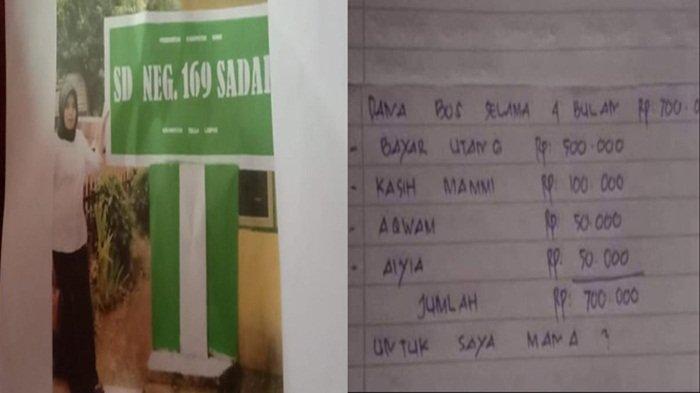 PEMERINTAH KABUPATEN BONE
SD NEG. 169 SADAI
KECAMATAN TELLU LIMPOE
DANA BOS SELAMA 4 BULAN RP. 700.0
- BAYAR UTANG RP. 500.000
- KASIH MAMMI RP. 100.000
- AQWAM RP. 50.000
- AIYIA RP. 50.000
JUMLAH RP. 700.000
UNTUK SAYA MANA ?